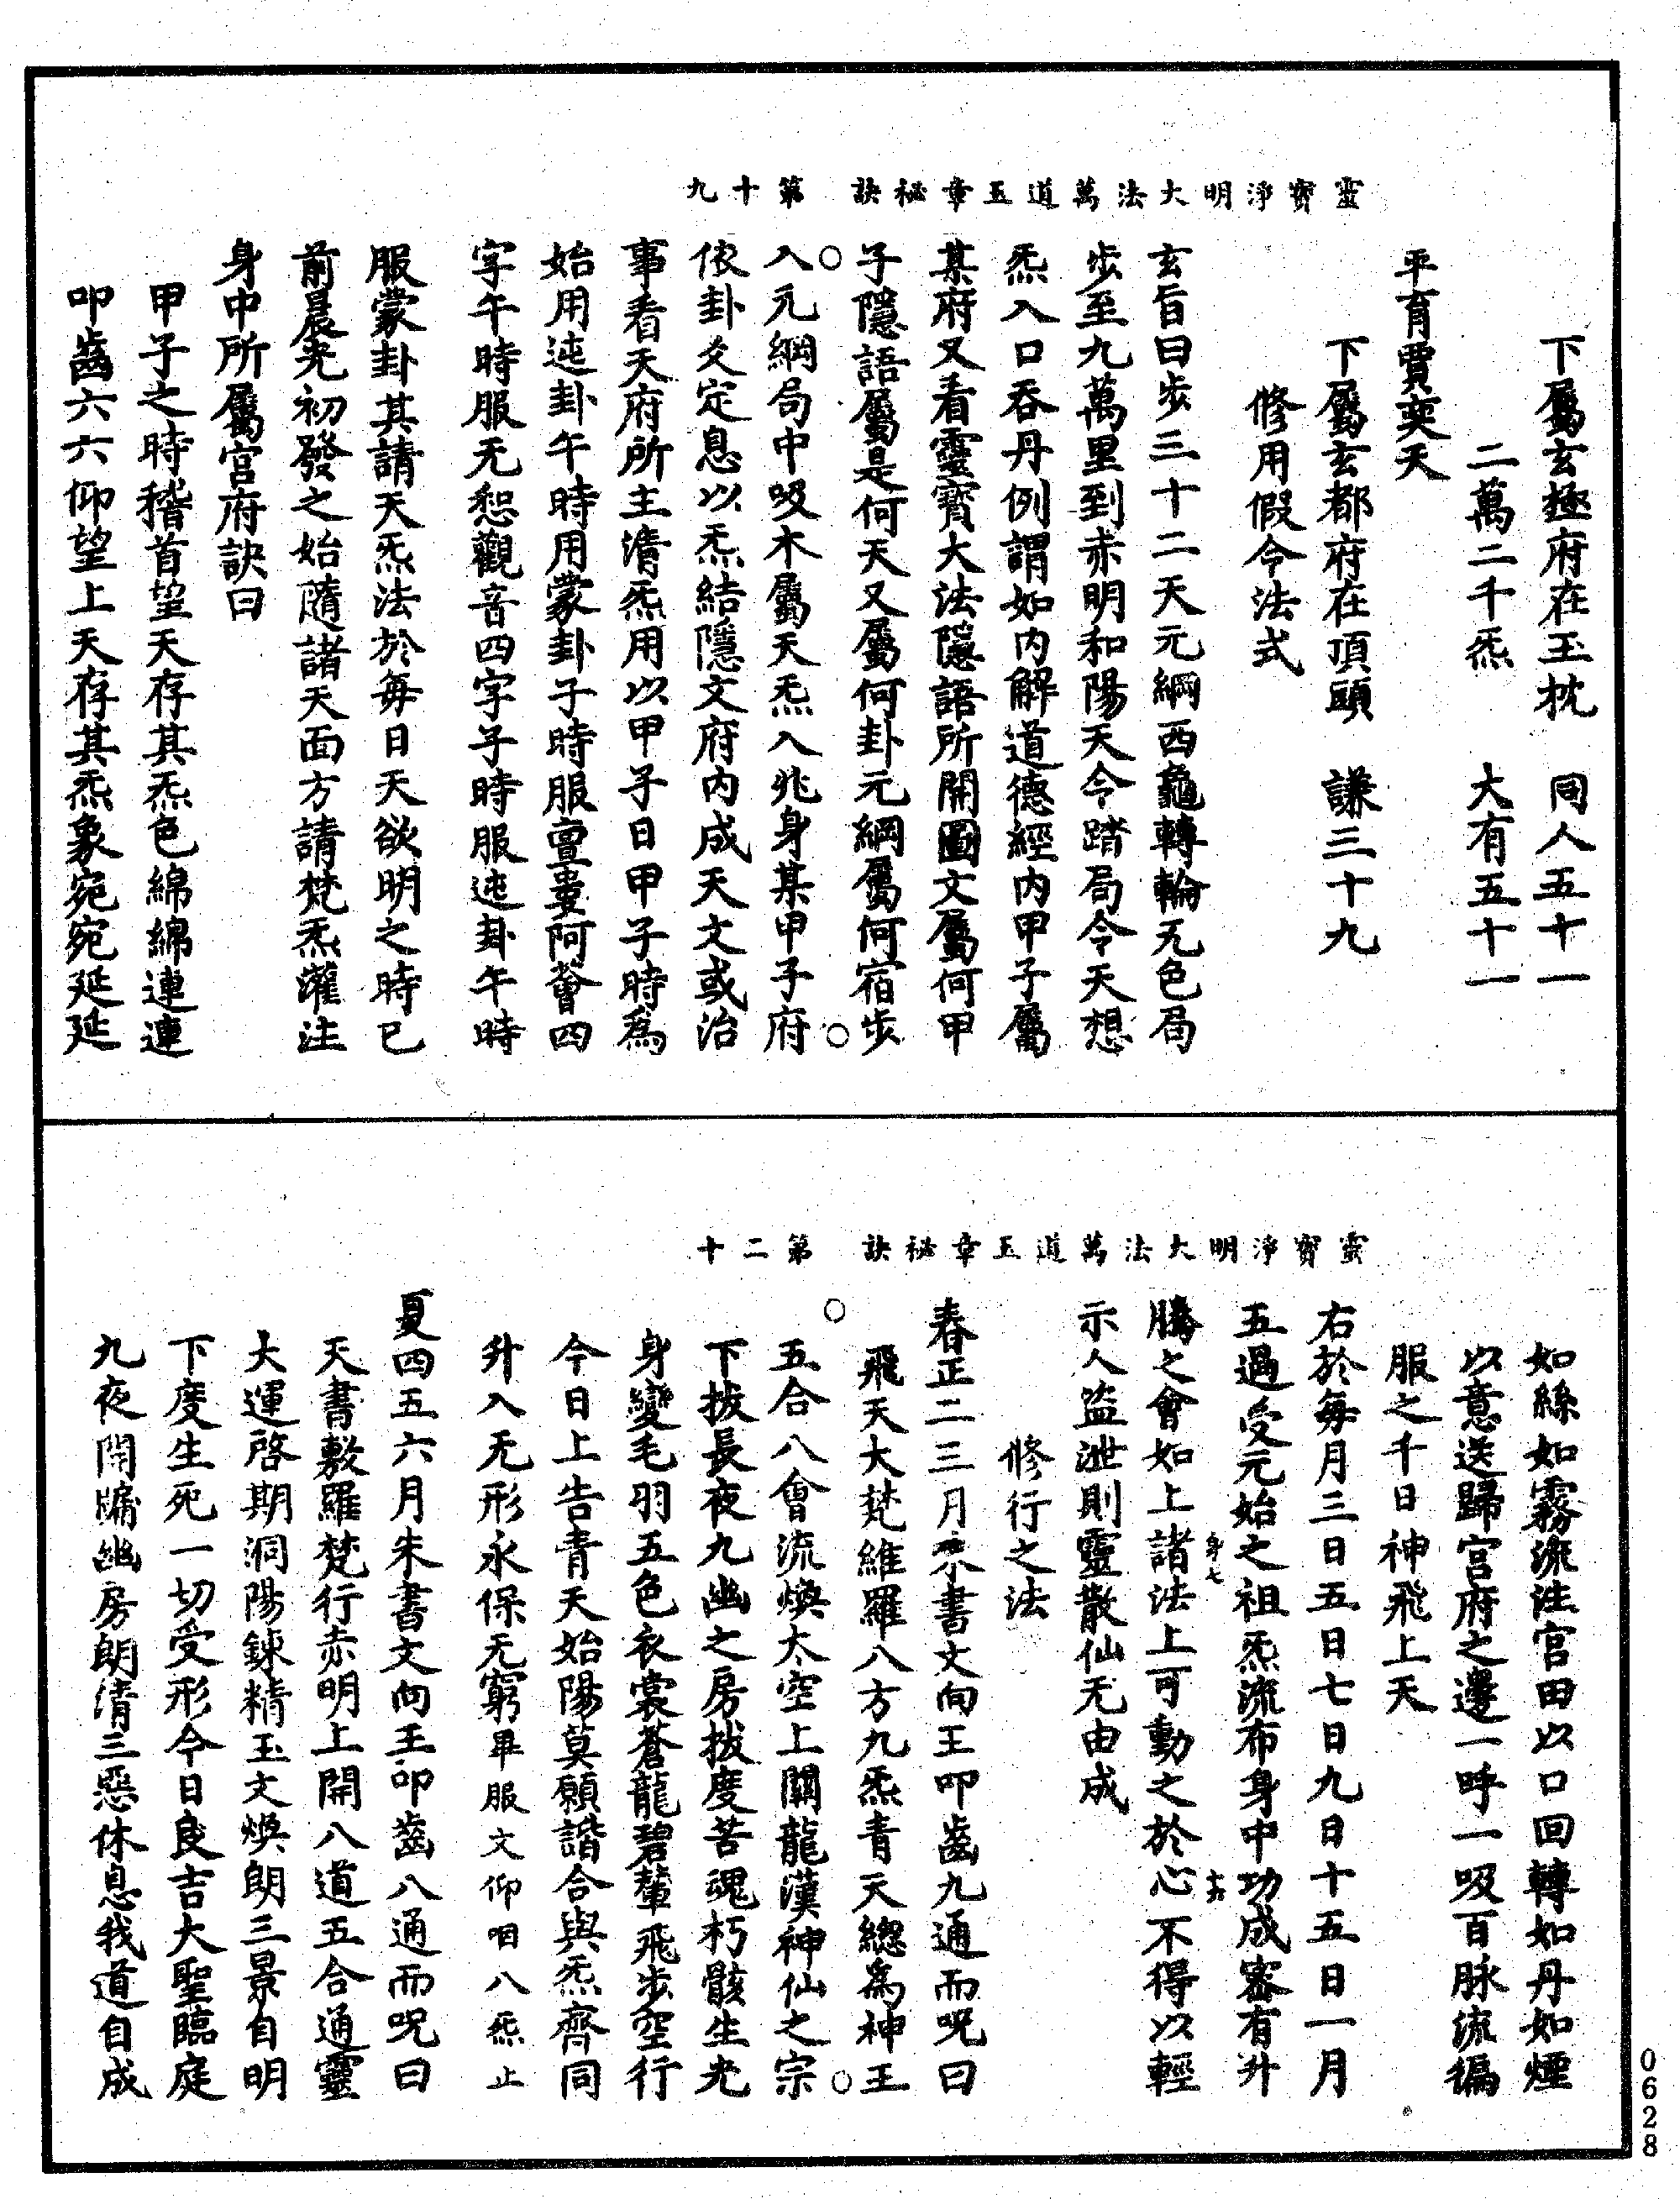 靈寶淨明大法萬道玉章秘訣　第十九
下屬玄極府在玉枕　同人五十一
二萬二千炁　大有五十一
平育賈奕天
下屬玄都府在頂頤　謙三十九
修用假令法式
玄旨曰步三十二天元綱西龜轉輪无色局
步至九萬里到赤明和陽天令踏局令天想
炁入口吞丹例謂如内解道德經内甲子屬
某府又看靈寶大法隱語所開圖文屬何甲
子隱語屬是何天又屬何卦元綱屬何宿步
入元綱局中吸木屬天炁入兆身某甲子府
依卦爻定息以炁結隱文府内成天文或治
事看天府所主清炁用以甲子日甲子時爲
始用迍卦午時用蒙卦子時服亶婁阿薈四
字午時服无恕觀音四字子時服迍卦午時
服蒙卦其請天炁法於每日天欲明之時已
前晨光初發之始隨諸天面方請梵炁灌注
身中所屬宫府訣曰
甲子之時稽首望天存其炁色綿綿連連
叩齒六六仰望上天存其炁象宛宛延延
靈寶淨明大法萬道玉章秘訣　第二十
如絲如霧流注宫田以口回轉如丹如煙
以意送歸宫府之邊一呼一吸百脉流徧
服之千日神飛上天
右於每月三日五日七日九日十五日一月
五過受元始之祖炁流布身中功成審有升
騰之會如上諸法上可動之於心不得以輕
示人盜泄則靈散仙无由成
修行之法
春正二三月木書文向王叩齒九通而呪曰
飛天大梵維羅八方九炁青天總爲神王
五合八會流煥太空上闢龍漢神仙之宗
下拔長夜九幽之房拔度苦魂朽骸生光
身變毛羽五色衣裳蒼龍碧輦飛步空行
今日上告青天始陽莫願諧合與炁齊同
升入无形永保无窮畢服文仰咽八炁止
夏四五六月朱書文向王叩齒八通而呪曰
天書敷羅梵行赤明上開八道五合通靈
大運啓期洞陽鍊精玉文煥朗三景自明
下度生死一切受形今日良吉大聖臨庭
九夜開牖幽房朗清三惡休息我道自成
0628